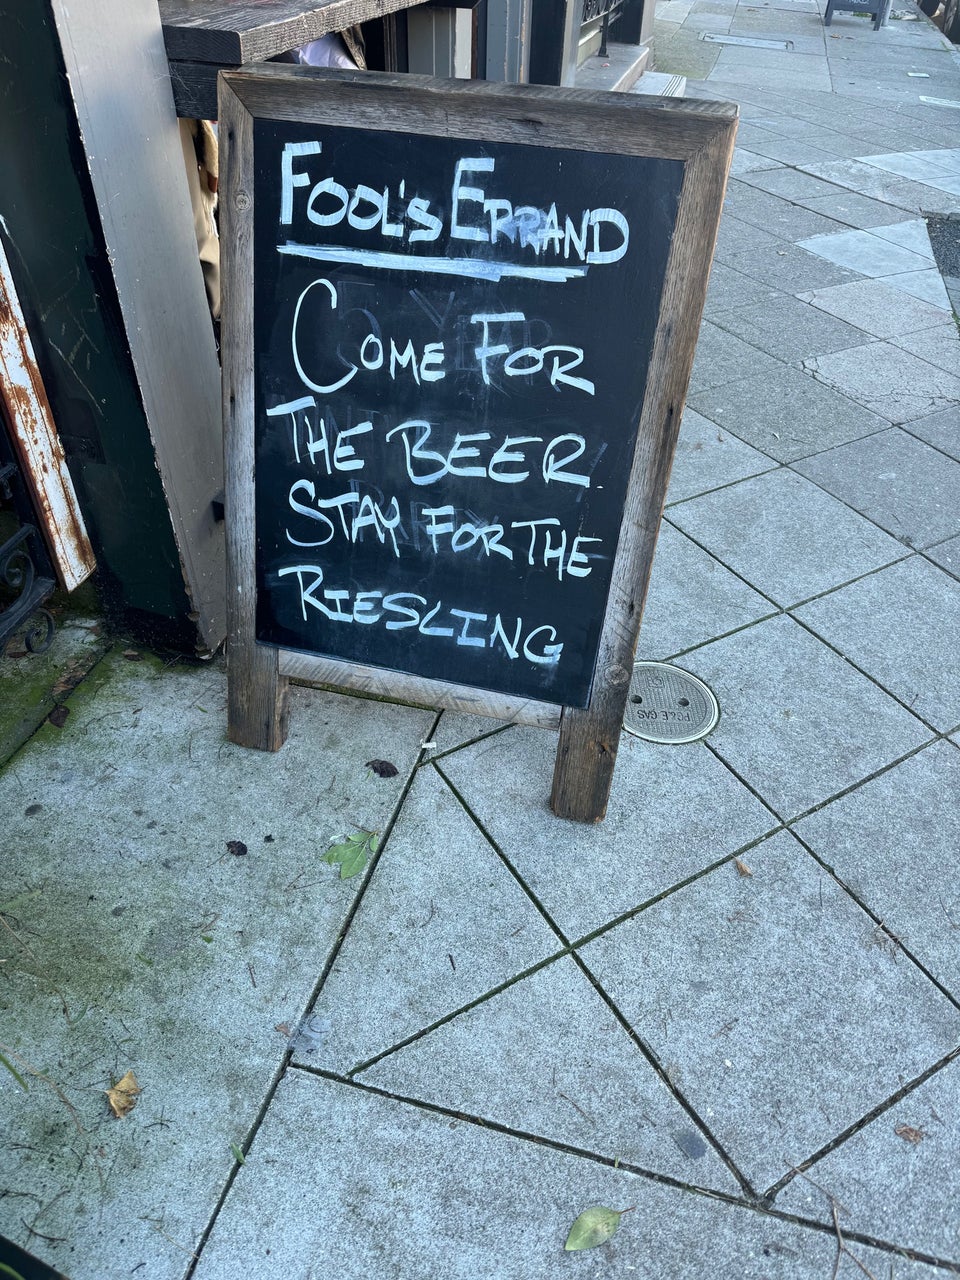 FOOL'S ERRAND
COME FOR
THE BEER
STAY FOR THE
RIESLING
PG&E GAS